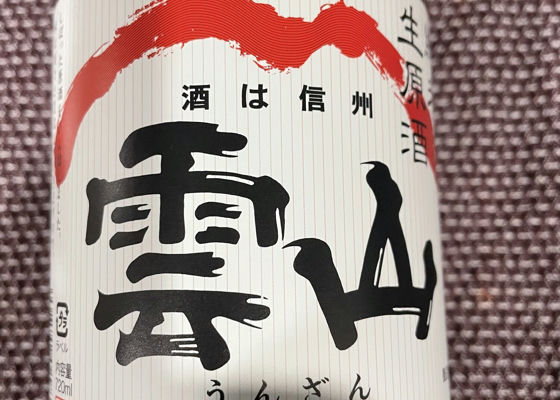 酒は信州
生原酒
雲山
うんざん
プラ
ラベル
内容量
720ml